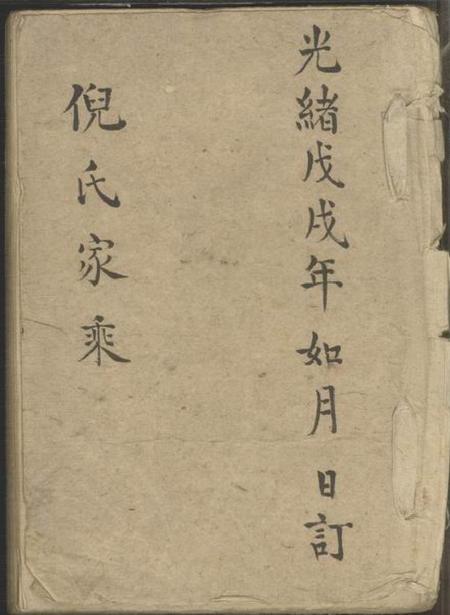 光緒戊戌年如月 日訂
倪氏家乘